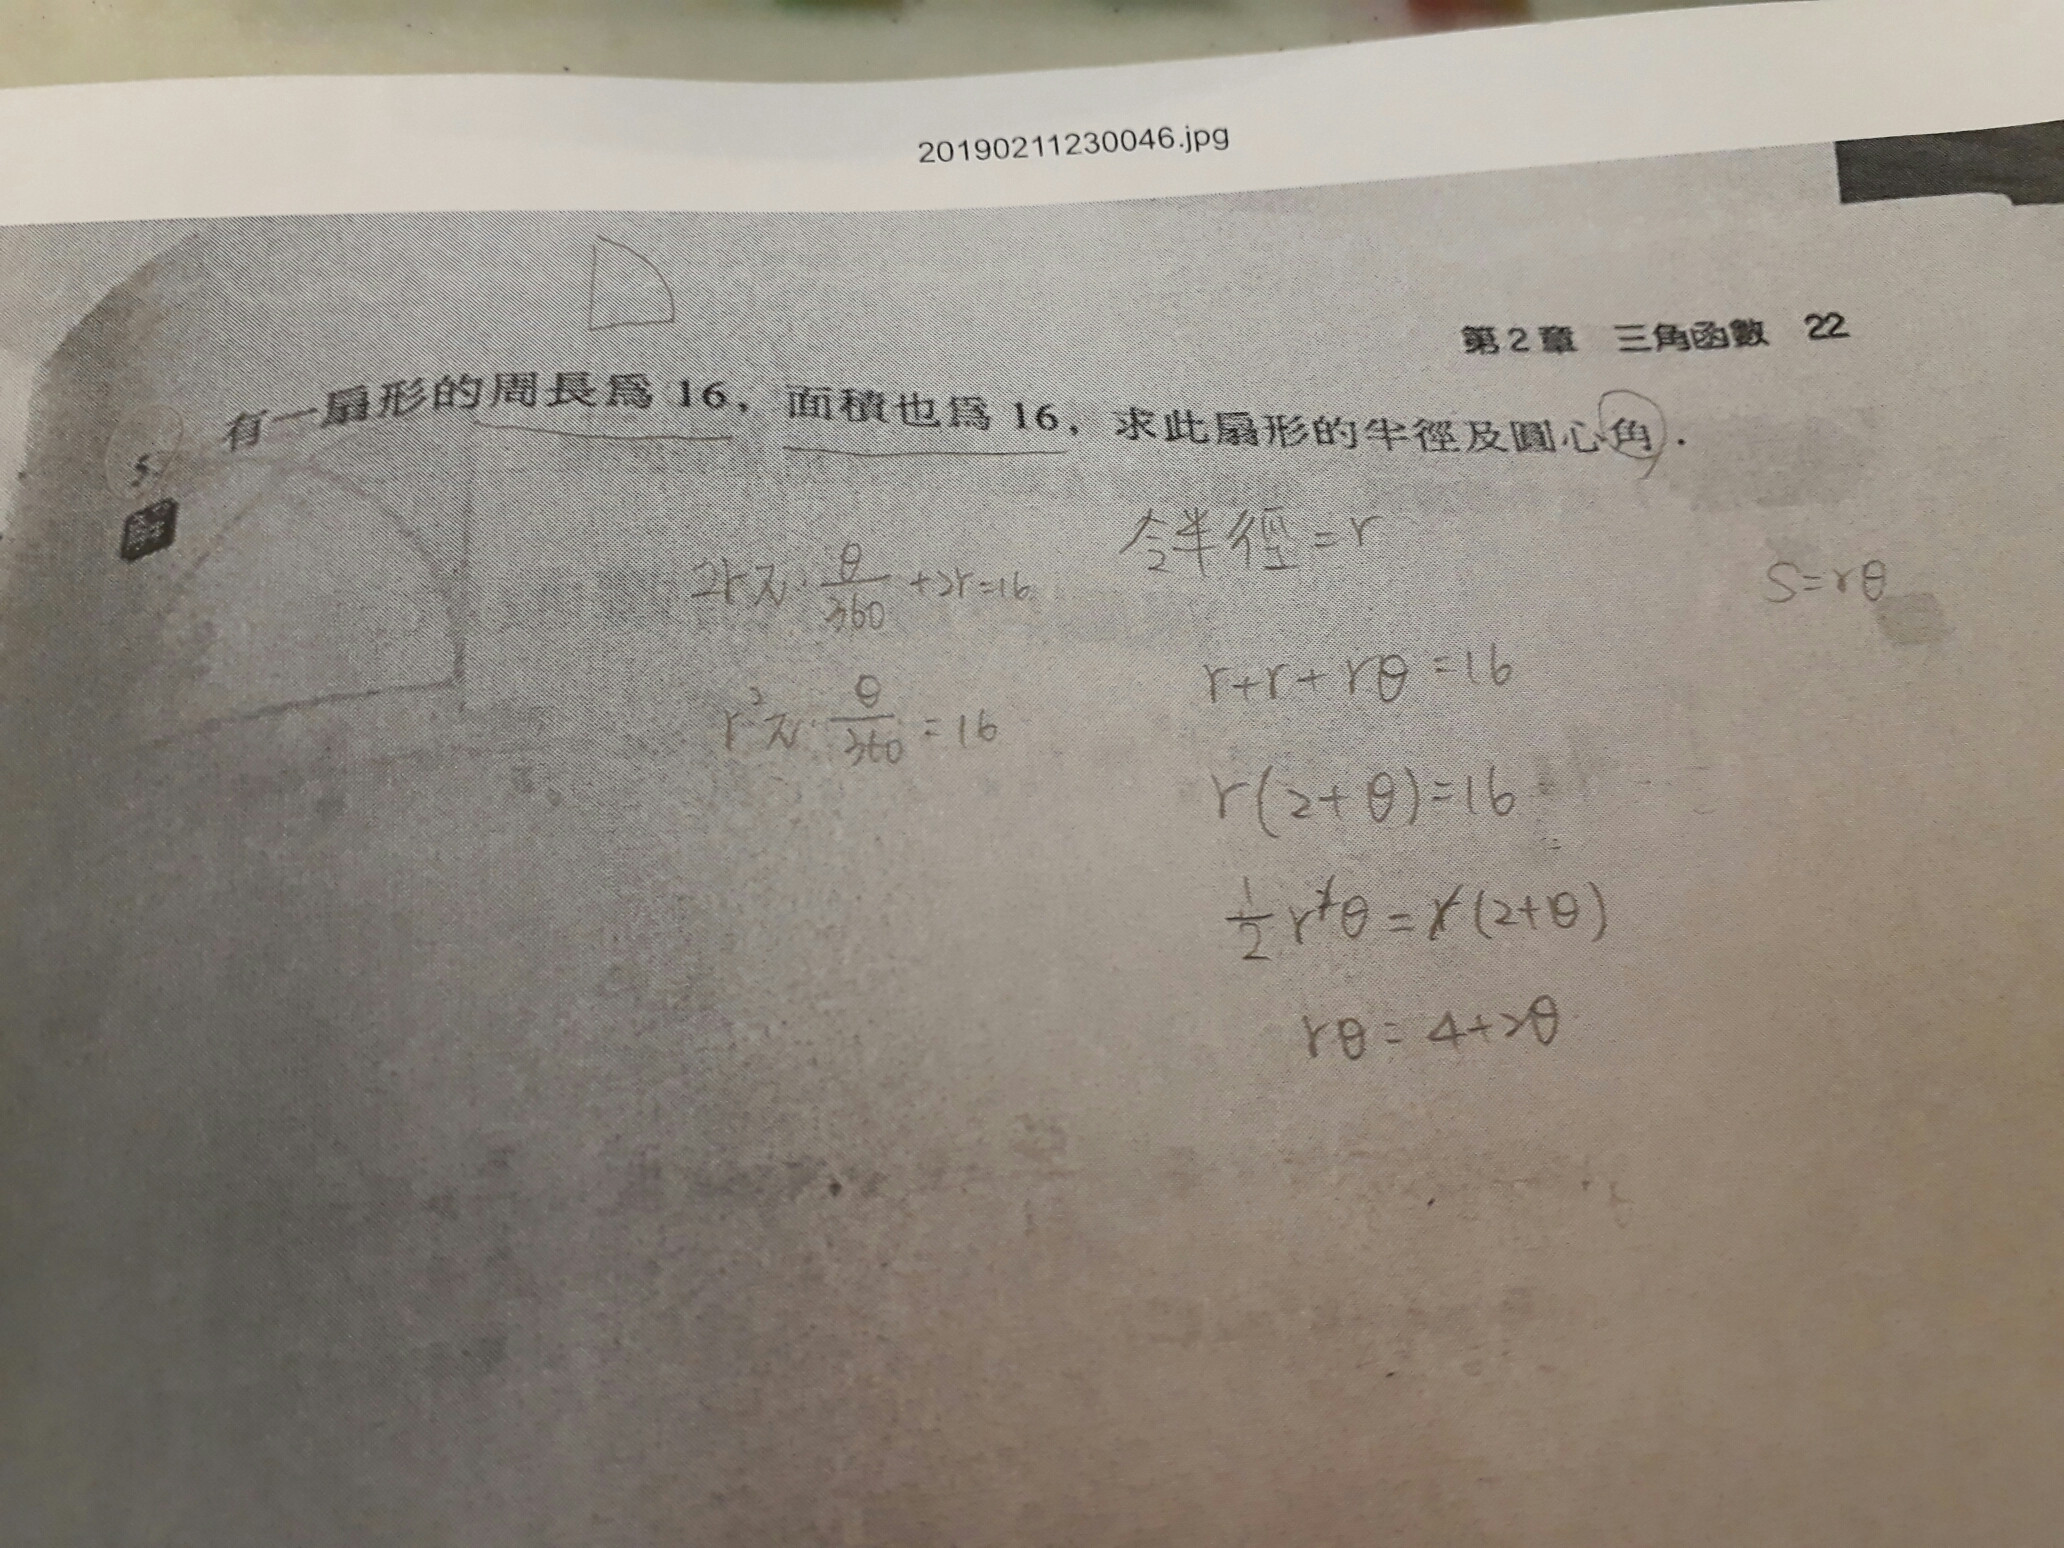 20190211230046.jpg
第2章 三角函數 22
5. 有一扇形的周長爲 16，面積也爲 16，求此扇形的半徑及圓心角．
令半徑=r
2rπ·θ/360+2r=16
S=rθ
r+r+rθ=16
r²π·θ/360=16
r(2+θ)=16
1/2 r²θ=r(2+θ)
rθ=4+2θ